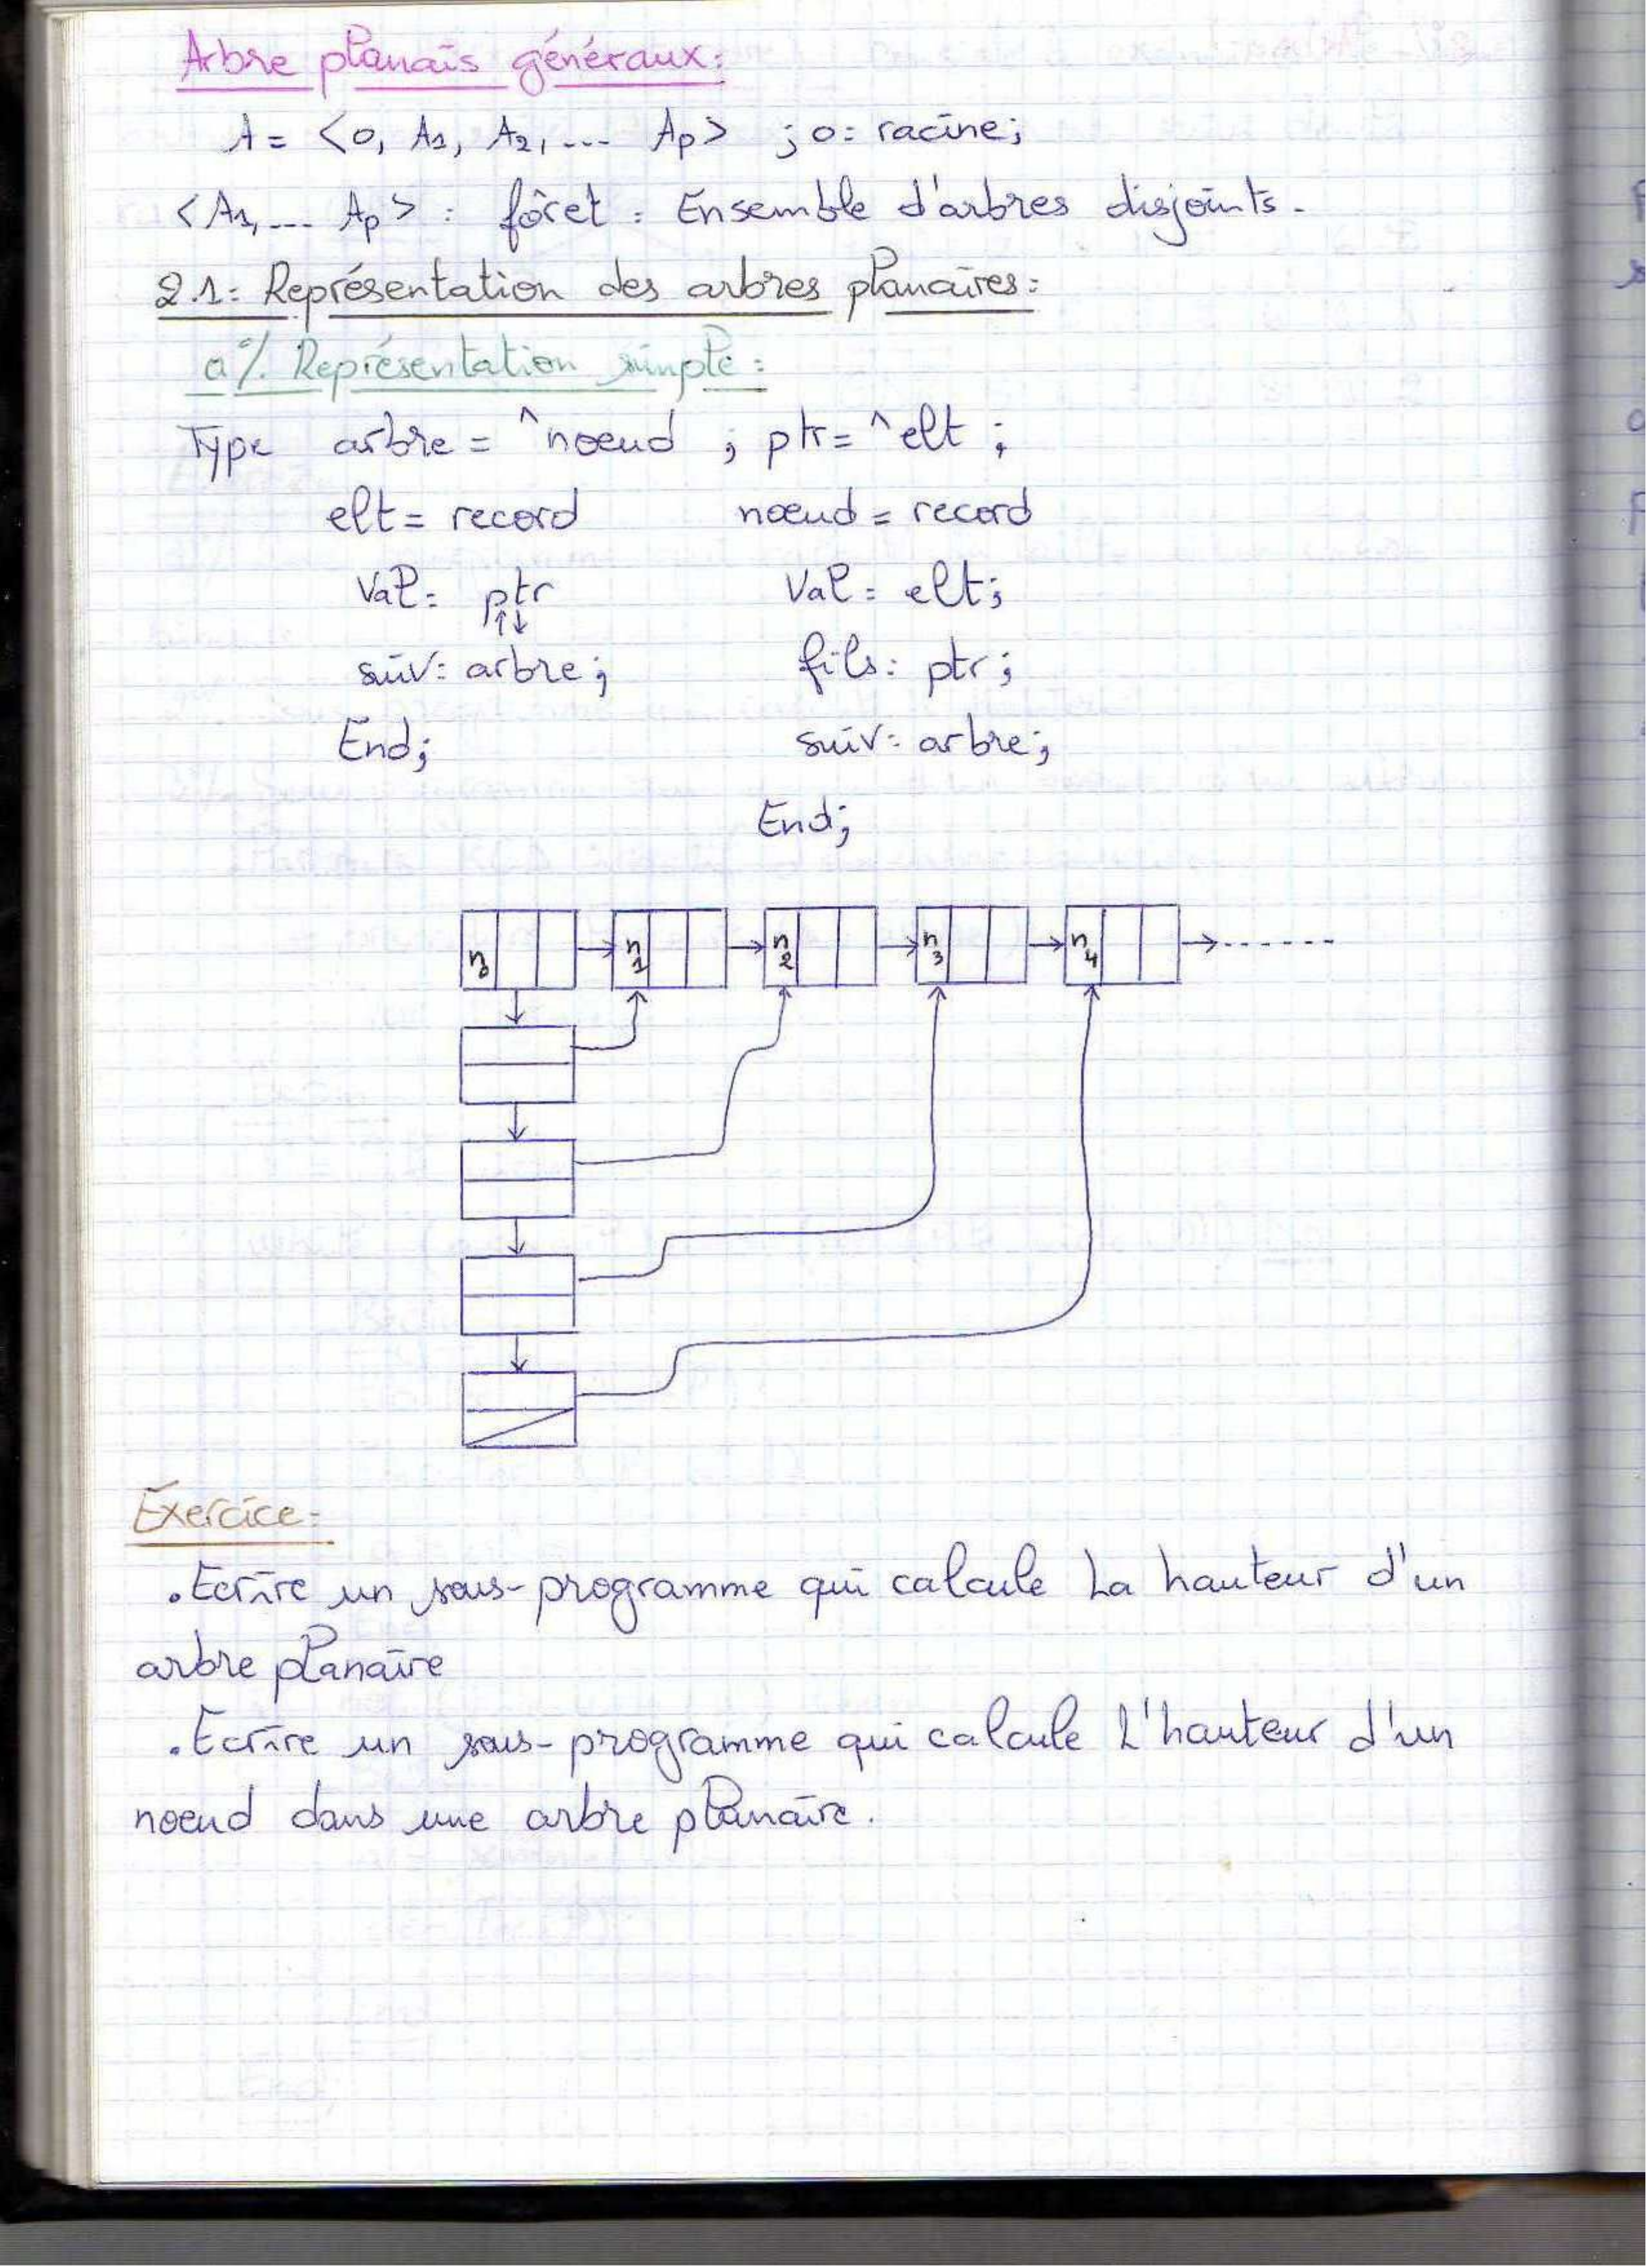 Arbre planais généraux:
A = <o, A1, A2, ... Ap> ; o: racine;
<A1, ... Ap> : fôret : Ensemble d'arbres disjoints.
2.1: Représentation des arbres planaires:
a%. Représentation simple:
Type arbre = ^nœud ; ptr= ^elt ;
elt = record nœud = record
Val: ptr Val: elt;
↑↓
suiv: arbre; fils: ptr;
End; suiv: arbre;
End;
n0 n1 n2 n3 n4
Exercice:
. Ecrire un sous-programme qui calcule La hauteur d'un
arbre planaire
. Ecrire un sous-programme qui calcule L'hauteur d'un
nœud dans une arbre planaire.